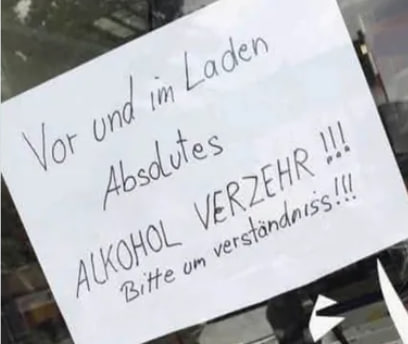 Vor und im Laden
Absolutes
ALKOHOL VERZEHR !!!
Bitte um verständniss!!!